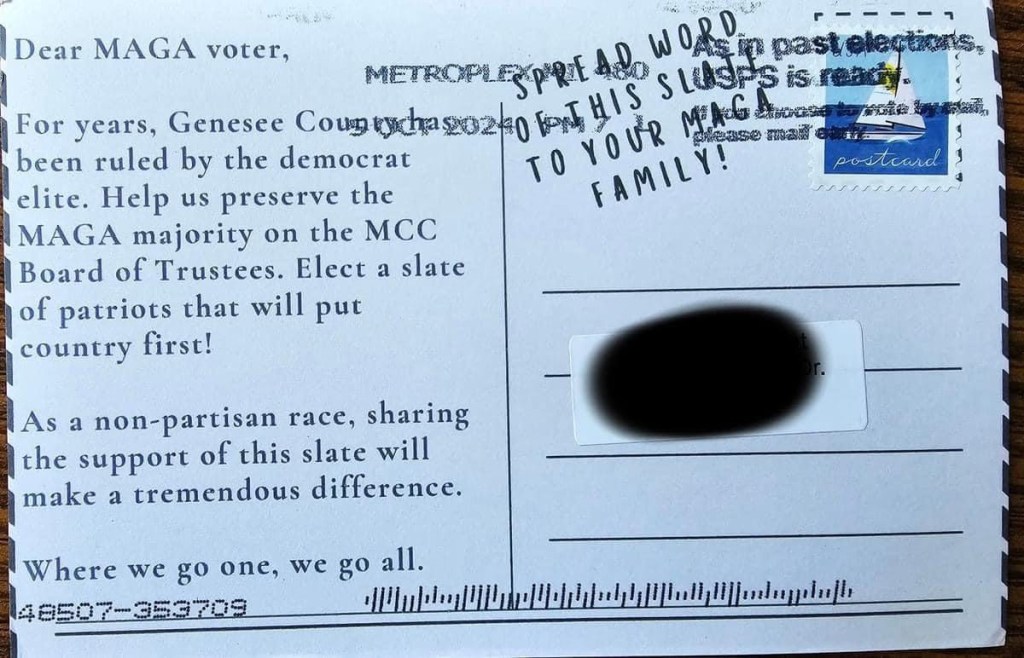 Dear MAGA voter,
For years, Genesee County has
been ruled by the democrat
elite. Help us preserve the
MAGA majority on the MCC
Board of Trustees. Elect a slate
of patriots that will put
country first!
As a non-partisan race, sharing
the support of this slate will
make a tremendous difference.
Where we go one, we go all.
48507-353709
METROPLEX MI 480
5 OCT 2024 PM 7 L
SPREAD WORD
OF THIS SLATE
TO YOUR MAGA
FAMILY!
As in past elections,
USPS is ready.
If you choose to vote by mail,
please mail early.
postcard
r.